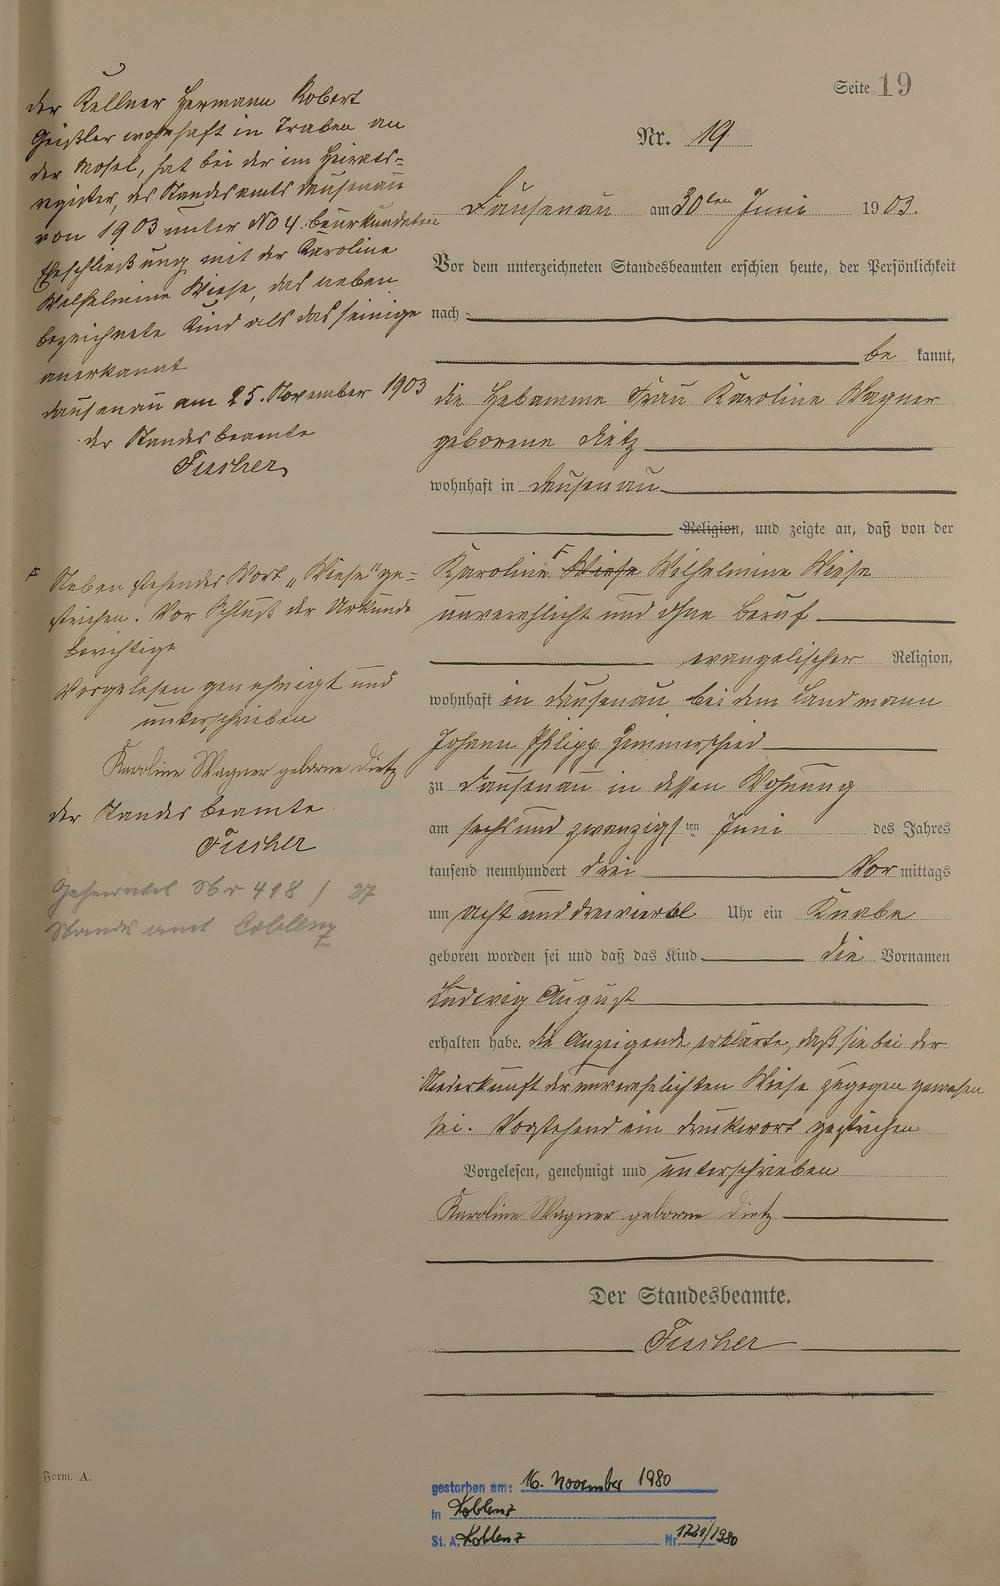 Seite 19
Nr. 19
Dausenau am 30ten Juni 1903.
Vor dem unterzeichneten Standesbeamten erschien heute, der Persönlichkeit
nach
be kannt,
die Hebamme Frau Karoline Wagner
geborene Dietz
wohnhaft in Dausenau
Religion, und zeigte an, daß von der
Karoline Wiese Wilhelmine Wiese
unverehlicht und ohne Beruf
evangelischer Religion,
wohnhaft in Dausenau bei dem Landmann
Johann Philipp Hemmerscheid
zu Dausenau in dessen Wohnung
am sechs und zwanzigsten Juni des Jahres
tausend neunhundert drei Vor mittags
um acht und dreiviertel Uhr ein Knabe
geboren worden sei und daß das Kind die Vornamen
Ludwig August
erhalten habe. Die Anzeigende erklärte, daß sie bei der
Niederkunft der unverehelichten Wiese zugegen gewesen
sei. Vorstehend ein Druckwort gestrichen
Vorgelesen, genehmigt und unterschrieben
Karoline Wagner geborne Dietz
Der Standesbeamte.
Fischer
der Kellner Hermann Robert
Geißler wohnhaft in Traben an
der Mosel, hat bei der im Heirats=
register, des Standesamts Dausenau
von 1903 unter No 4. beurkundeten
Eheschließung mit der Karoline
Wilhelmine Wiese, das neben
bezeichnete Kind als das seinige
anerkannt
Dausenau am 25. November 1903
der Standesbeamte
Fischer
F Nebenstehendes Wort „Wiese“ ge=
strichen. Vor Schluß der Urkunde
berichtigt
Vorgelesen genehmigt und
unterschrieben
Karoline Wagner geborne Dietz
der Standesbeamte
Fischer
Geheiratet Nr 418 / 27
Standesamt Coblenz
Form. A.
gestorben am: 16. November 1980
in Koblenz
St. A. Koblenz Nr 1721/1980